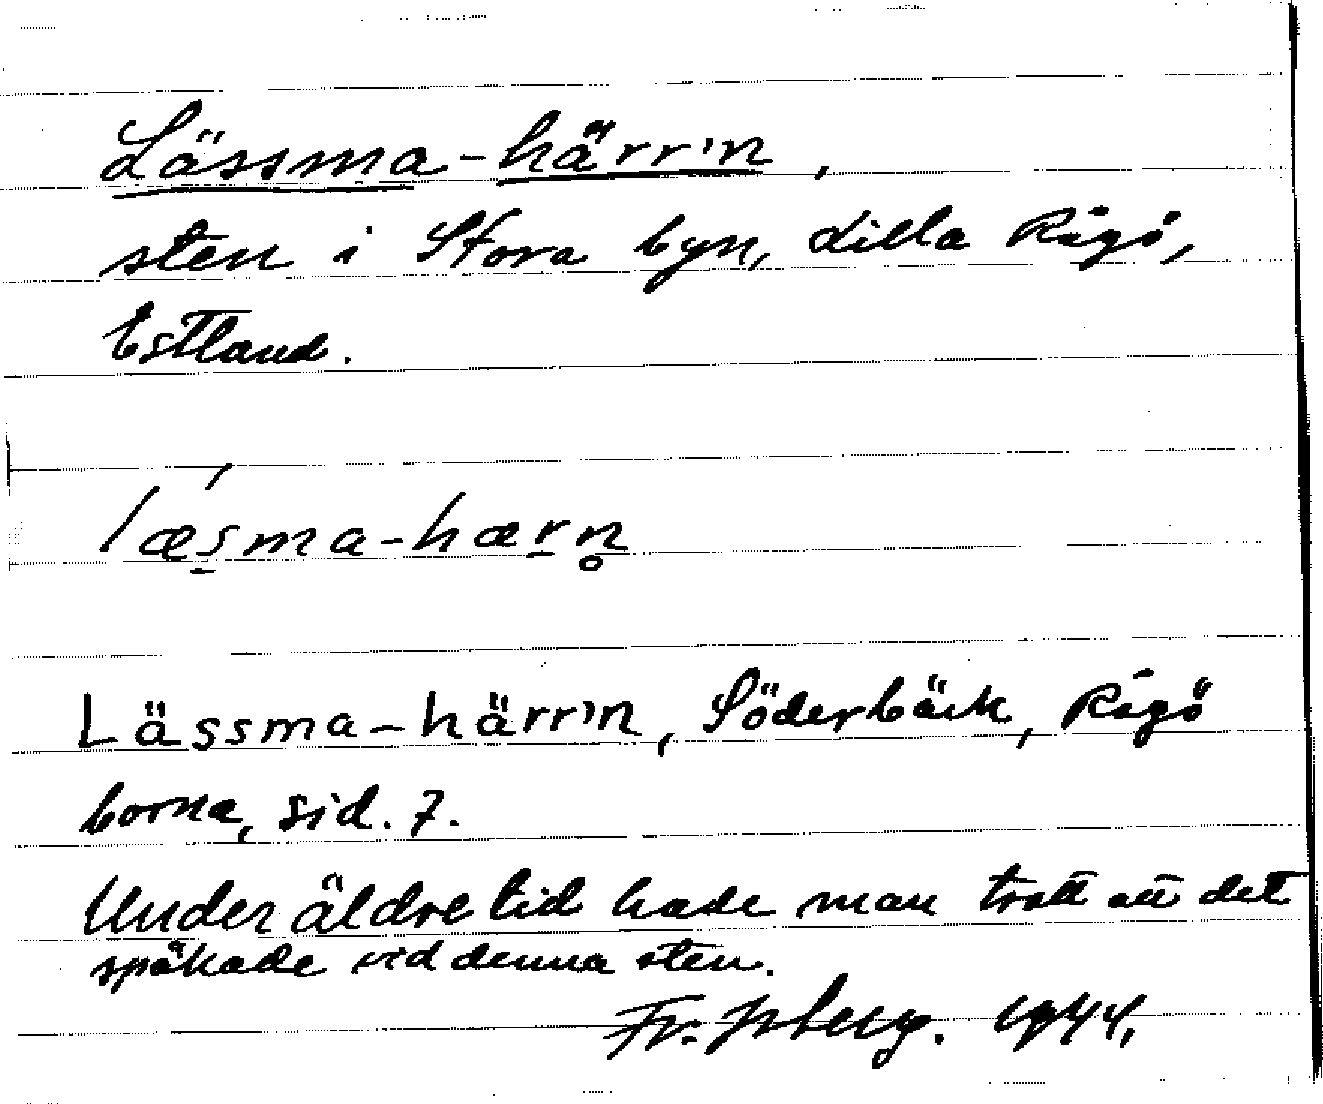 Lässma-härr'n,
sten i Stora byn, Lilla Rågö,
Estland.
læsma-hærn̥
Lässma-härr'n, Söderbäck, Rågö
borna, sid. 7.
Under äldre tid hade man trott att det
spökade vid denna sten.
Fr. Isberg. 1944.